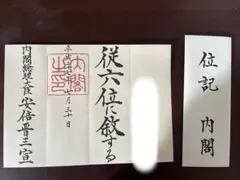 位記　内閣
従六位に叙する
平成 月三十日
内閣之印
内閣総理大臣安倍晋三宣